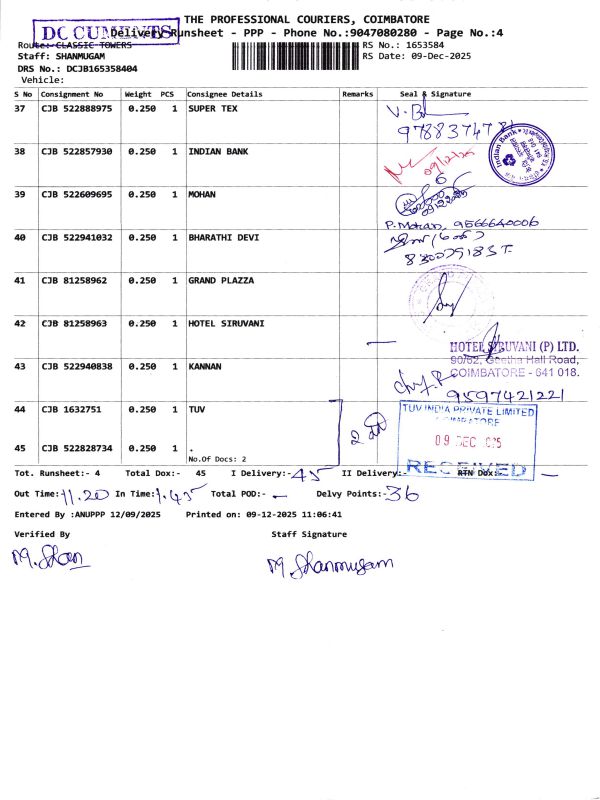 THE PROFESSIONAL COURIERS, COIMBATORE
DOCUMENTS
Delivery Runsheet - PPP - Phone No.:9047080280 - Page No.:4
Route: CLASSIC TOWERS
RS No.: 1653584
Staff: SHANMUGAM
RS Date: 09-Dec-2025
DRS No.: DCJB165358404
Vehicle:
S No Consignment No Weight PCS Consignee Details Remarks Seal & Signature
37 CJB 522888975 0.250 1 SUPER TEX
38 CJB 522857930 0.250 1 INDIAN BANK
Indian Bank
09/12/25
39 CJB 522609695 0.250 1 MOHAN
P. Mohan, 9566640006
40 CJB 522941032 0.250 1 BHARATHI DEVI
41 CJB 81258962 0.250 1 GRAND PLAZZA
42 CJB 81258963 0.250 1 HOTEL SIRUVANI
HOTEL SIRUVANI (P) LTD.
90/62, Geetha Hall Road,
COIMBATORE - 641 018.
43 CJB 522940838 0.250 1 KANNAN
9597421221
44 CJB 1632751 0.250 1 TUV
TUV INDIA PRIVATE LIMITED
COIMBATORE
09 DEC 2025
RECEIVED
45 CJB 522828734 0.250 1 .
No.Of Docs: 2
Tot. Runsheet:- 4 Total Dox:- 45 I Delivery:- 45 II Delivery:- RTN Dox:-
Out Time: 11.20 In Time: 1.45 Total POD:- - Delvy Points:- 36
Entered By :ANUPPP 12/09/2025 Printed on: 09-12-2025 11:06:41
Verified By Staff Signature
M. Shan M. Shanmugam